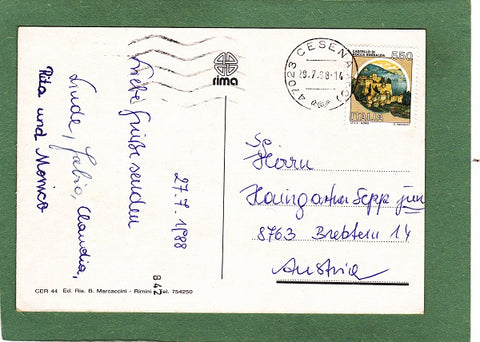 27.7.1988
Liebe Grüße senden
Linde, Fabio, Claudia,
Rita und Monica
rima
47023 CESENA
29.7.88-14
CASTELLO DI
ROCCA SINIBALDA
550
ITALIA
Herrn
Haingartner Sepp jun
8763 Bretstein 14
Austria
CER 44 Ed. Ris. B. Marcaccini - Rimini - Tel. 754250
B 42